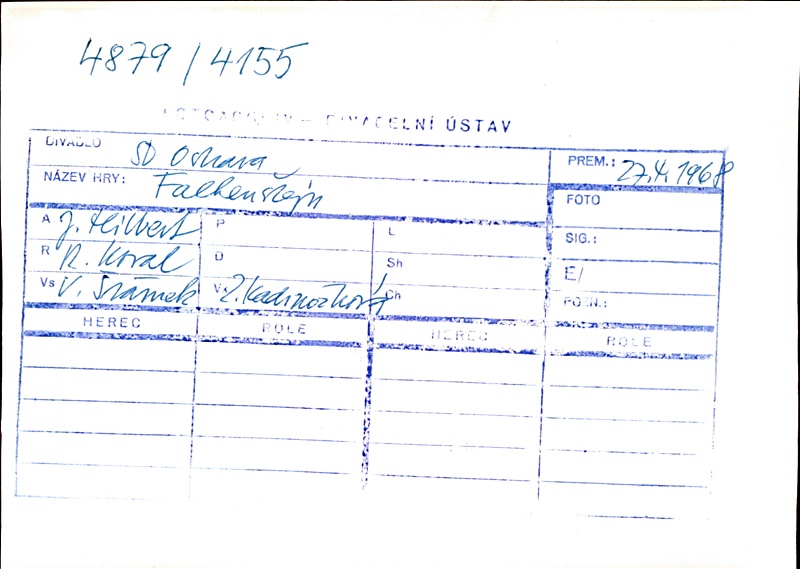 4879 / 4155
FOTOARCHIV – DIVADELNÍ ÚSTAV
DIVADLO SD Ostrava
PREM.: 27.4.1968
NÁZEV HRY: Falkenštejn
FOTO
A J. Hilbert P L
SIG.:
R R. Koval O Sh
E/
Vs V. Šrámek Vk Z. Kadrnožková Ch
POZN.:
HEREC ROLE HEREC ROLE